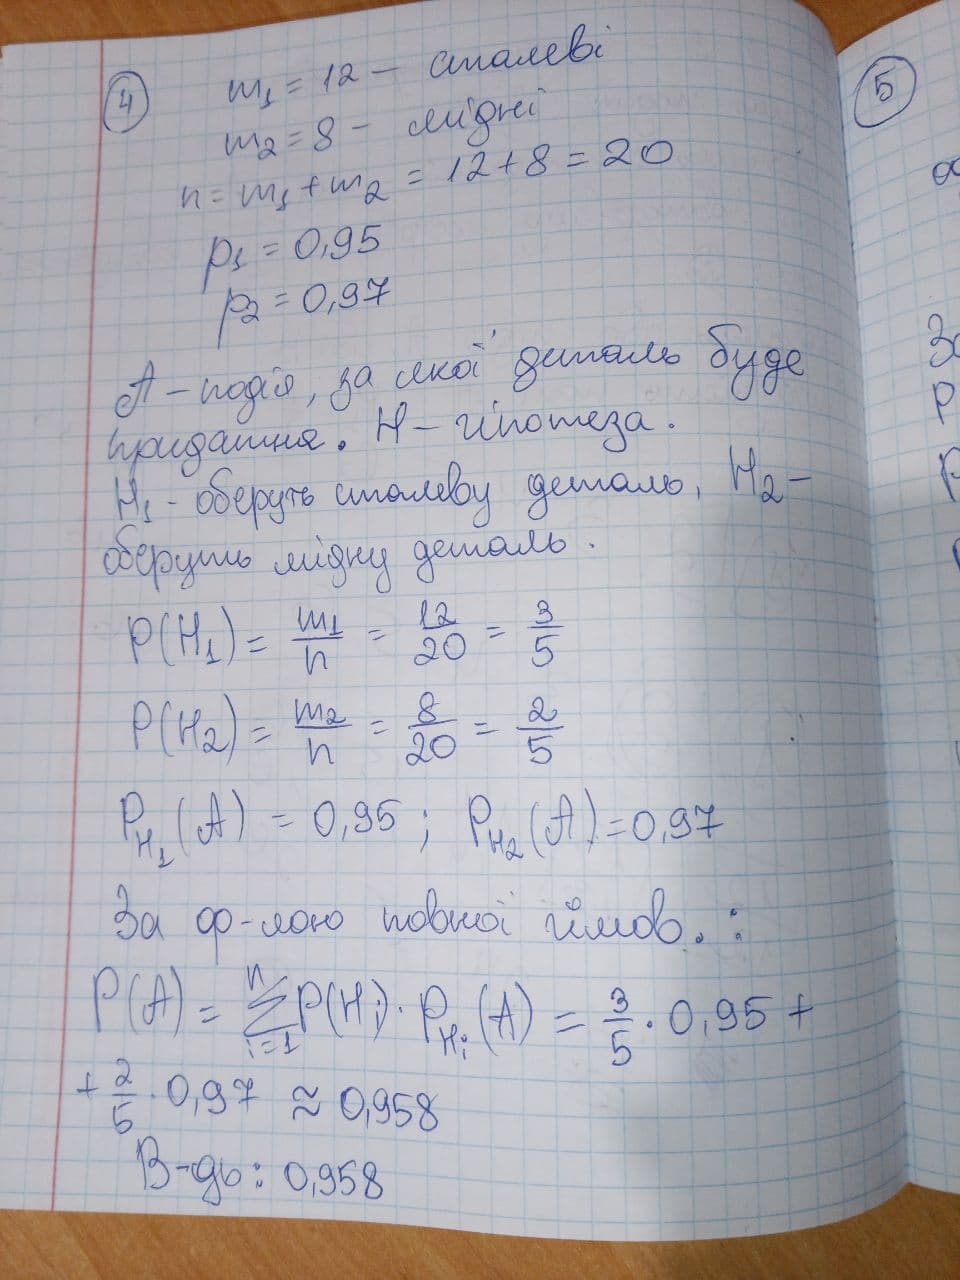 4
m₁ = 12 – сталеві
m₂ = 8 – мідні
n = m₁ + m₂ = 12 + 8 = 20
p₁ = 0,95
p₂ = 0,97
A – подія, за якої деталь буде
придатня. H – гіпотеза.
H₁ - оберуть сталеву деталь, H₂ –
оберуть мідну деталь.
P(H₁) = m₁/n = 12/20 = 3/5
P(H₂) = m₂/n = 8/20 = 2/5
P_H₁(A) = 0,95 ; P_H₂(A) = 0,97
За ф-лою повної ймов. :
P(A) = ∑ⁿᵢ₌₁ P(Hᵢ) · P_Hᵢ(A) = 3/5 · 0,95 +
+ 2/5 · 0,97 ≈ 0,958
В-дь: 0,958
5
За
P
P